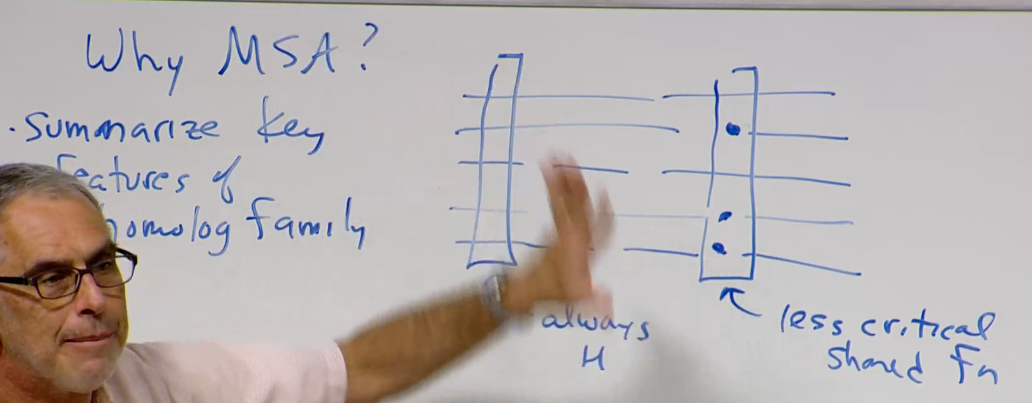 Why MSA?
· Summarize key
features of
homolog family
always
H
less critical
shared Fn